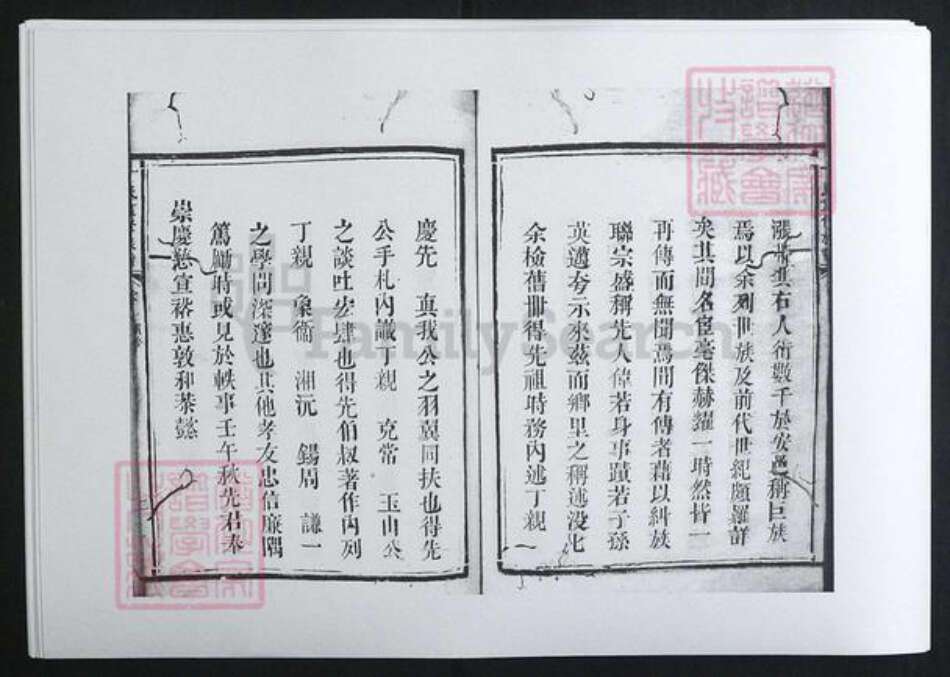 濺其右人衍數千於安邑稱巨族
焉以余列世族及前代世紀頗羅詳
矣其間名臣毫傑赫耀一時然皆一
再傳而無聞焉間有傳者藉以糾族
聯宗盛稱先人偉若身事蹟若子孫
英邁夸示來茲而鄉里之稱述没七
余檢舊冊得先祖時務內述丁親一
慶先 真我公之羽翼同扶也得先
公手札內議丁親 克常 玉山公
之談吐宏肆也得先伯叔著作內列
丁親 象衛 湘沅 錫周 謙一
之學問深邃也其他孝友忠信廉隅
篤 時或見於軼事壬午秋先君奉
崇慶慈宣裕惠敦和萘懿
FamilySearch
譜學會
收藏
譜學會